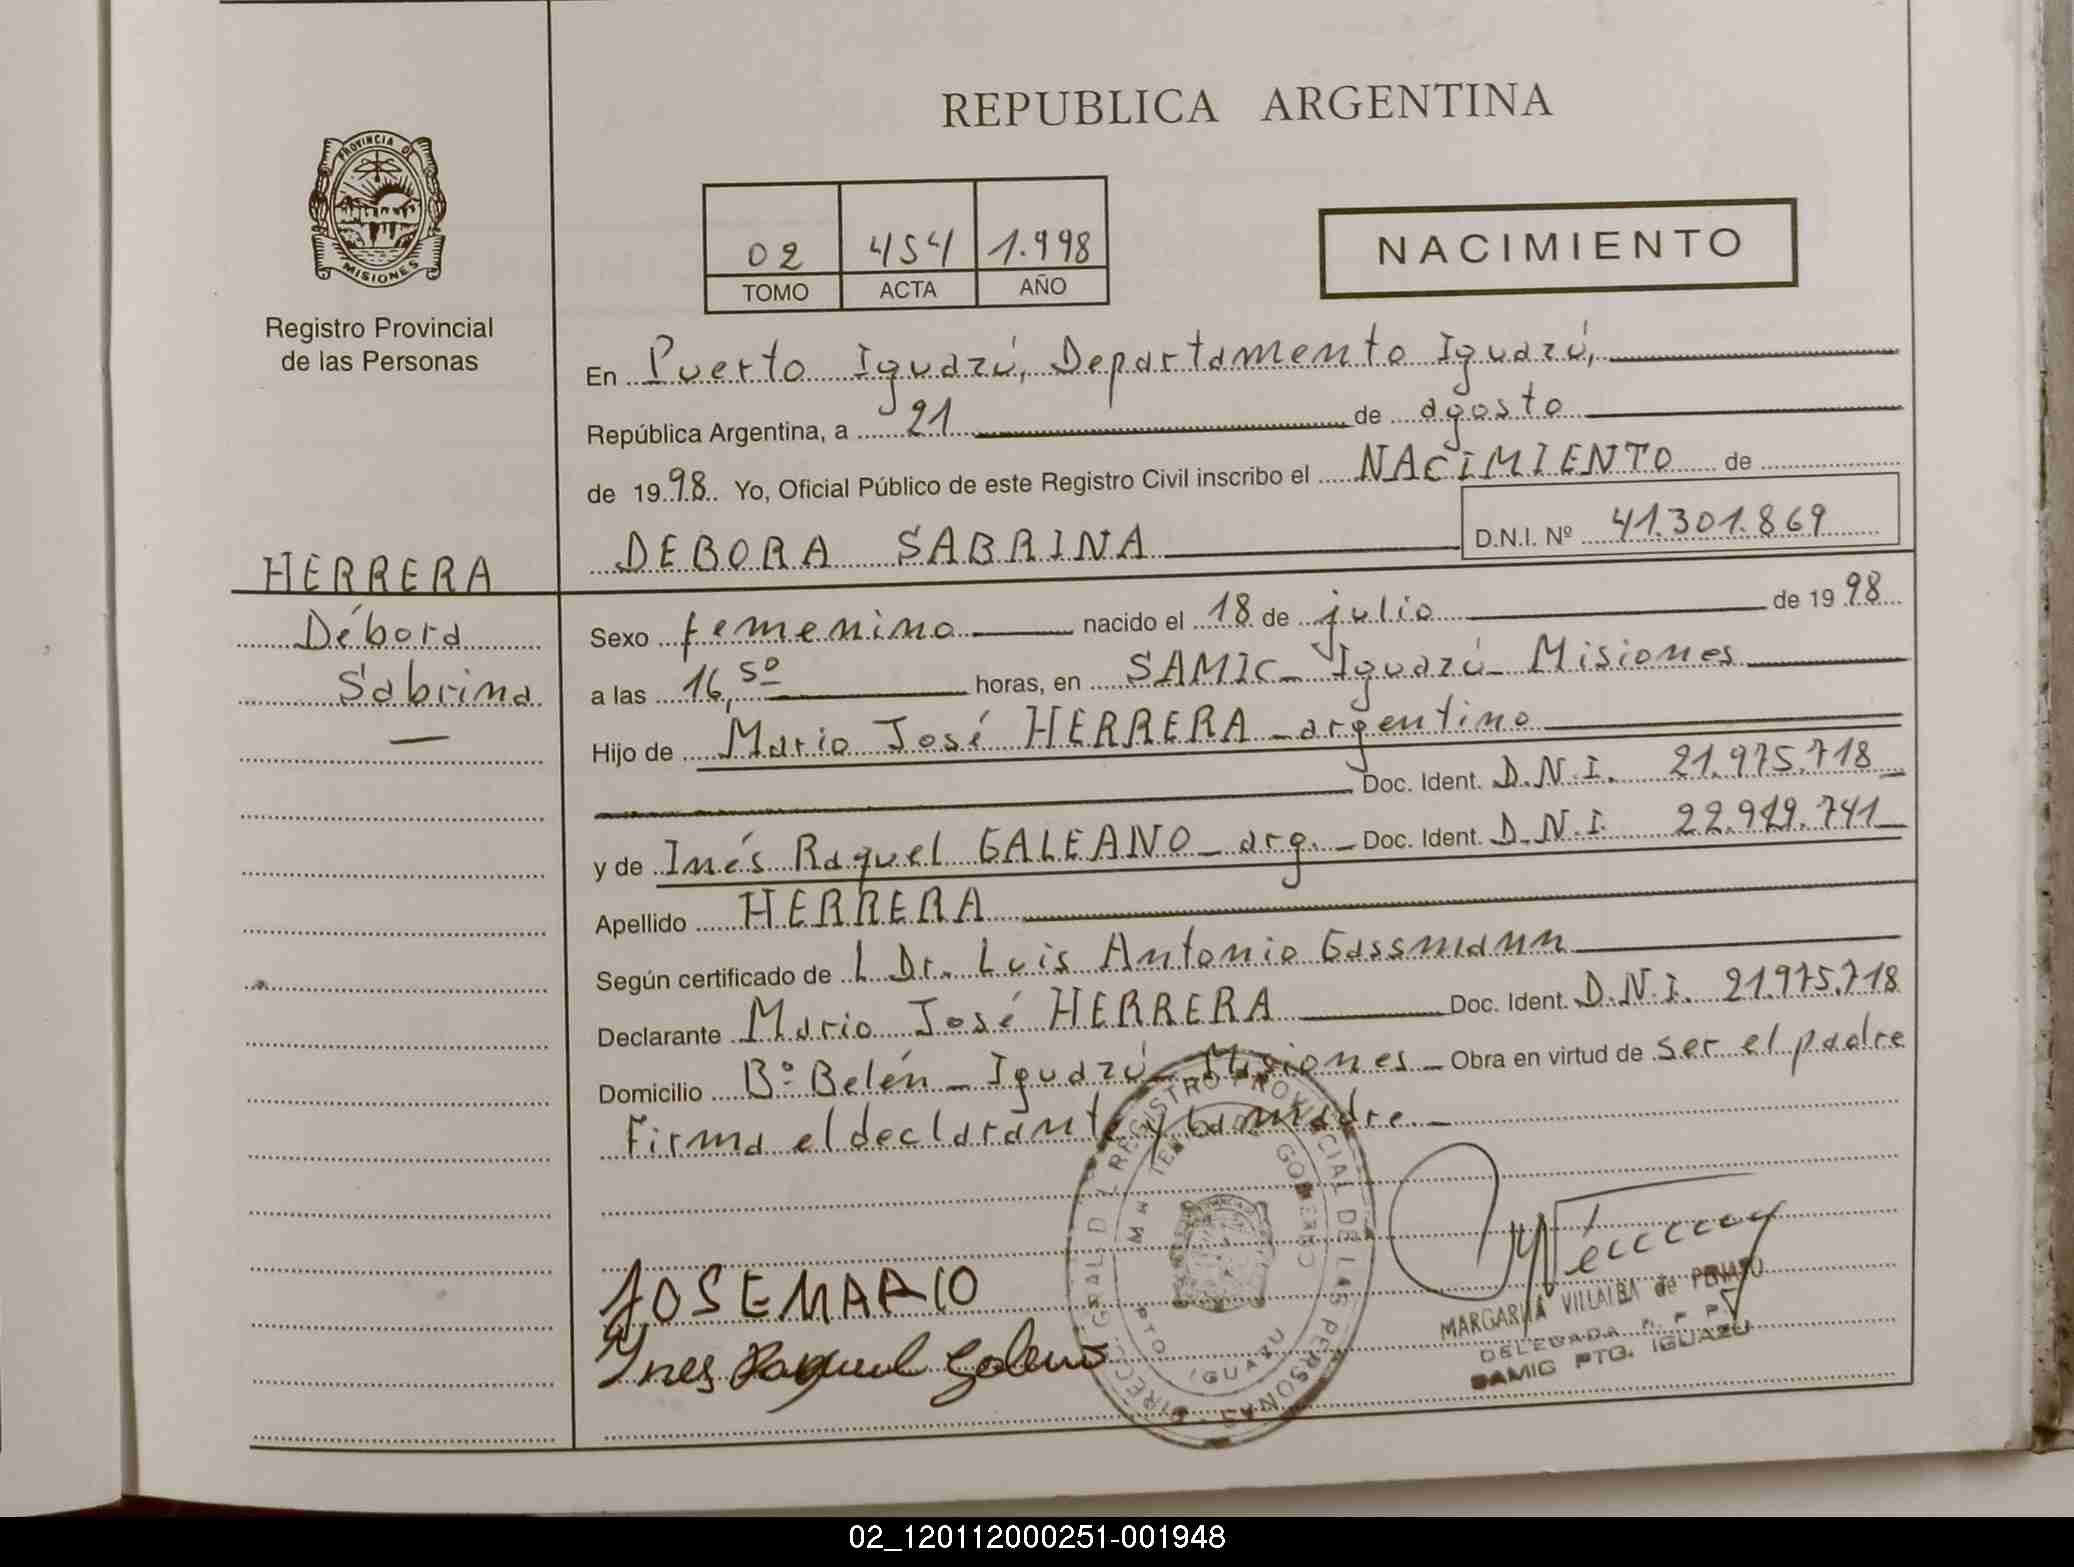 REPUBLICA ARGENTINA
PROVINCIA DE
MISIONES
Registro Provincial
de las Personas
02 454 1.998
TOMO ACTA AÑO
NACIMIENTO
En Puerto Iguazú, Departamento Iguazú,
República Argentina, a 21 de agosto
de 1998. Yo, Oficial Público de este Registro Civil inscribo el NACIMIENTO de
DEBORA SABRINA D.N.I. Nº 41.301.869
HERRERA
Débora
Sabrina
Sexo femenino nacido el 18 de julio de 1998
a las 16,50 horas, en SAMIC - Iguazú - Misiones
Hijo de Mario José HERRERA - argentino
Doc. Ident. D.N.I. 21.975.718
y de Inés Raquel GALEANO - arg. - Doc. Ident. D.N.I. 22.929.741
Apellido HERRERA
Según certificado de L Dr. Luis Antonio Gassmann
Declarante Mario José HERRERA Doc. Ident. D.N.I. 21.975.718
Domicilio Bº Belén - Iguazú - Misiones - Obra en virtud de ser el padre
Firma el declarante y la madre. -
JOSE MARIO
Ynes Raquel Galeano
REGISTRO PROVINCIAL DE LAS PERSONAS
GOBIERNO
PTO IGUAZU
MARGARITA VILLALBA de
DELEGADA R. P. P.
SAMIC PTO. IGUAZU
02_120112000251-001948